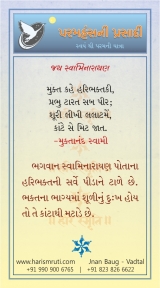 પરમહંસની પ્રસાદી
સ્વયં થી પરમની યાત્રા
જય સ્વામિનારાયણ
મુક્ત કહે હરિભક્તકી,
પ્રભુ ટારત સબ પીર;
શૂરી લીખી લલાટમેં,
કાંટે સે મિટ જાત.
-મુક્તાનંદ સ્વામી
ભગવાન સ્વામિનારાયણ પોતાના
હરિભક્તની સર્વે પીડાને ટાળે છે.
ભક્તના ભાગ્યમાં શૂળીનું દુઃખ હોય
તો તે કાંટાથી મટાડે છે.
www.harismruti.com
Jnan Baug - Vadtal
+91 990 900 6765 | +91 823 826 6622